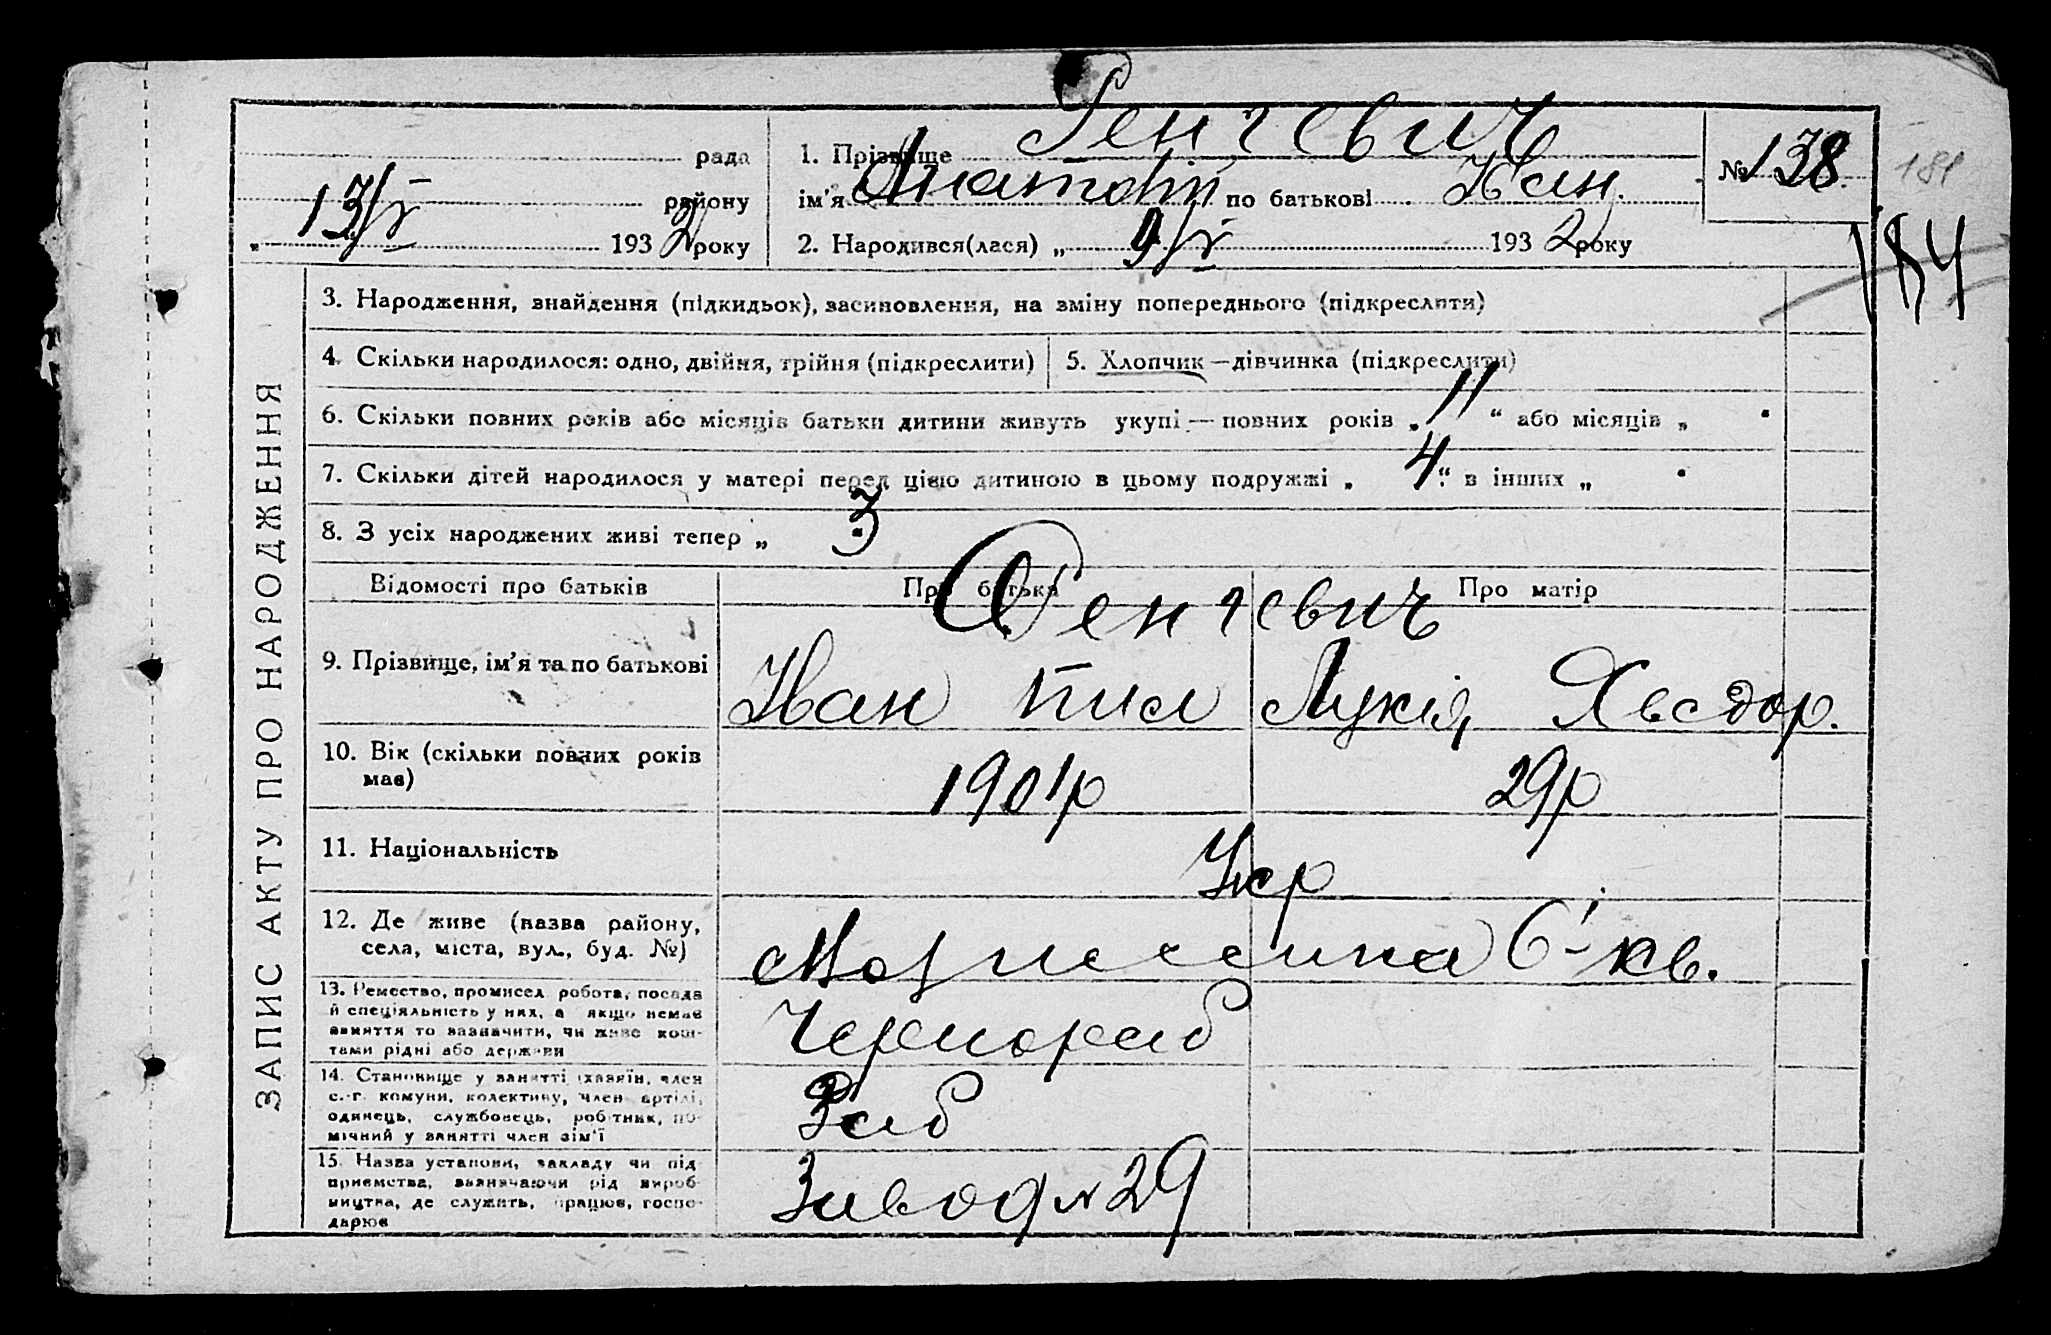 рада
району
13/V 1932 року
1. Прізвище Ренгевич
ім'я Анатолій по батькові Іван.
№ 138.
181
184
2. Народився(лася) „ 9/V 1932 року
ЗАПИС АКТУ ПРО НАРОДЖЕННЯ
3. Народження, знайдення (підкидьок), засиновлення, на зміну попереднього (підкреслити)
4. Скільки народилося: одно, двійня, трійня (підкреслити)
5. Хлопчик—дівчинка (підкреслити)
6. Скільки повних років або місяців батьки дитини живуть укупі — повних років „ 11 “ або місяців „
7. Скільки дітей народилося у матері перед цією дитиною в цьому подружжі „ 4 “ в інших „
8. З усіх народжених живі тепер „ 3
Відомості про батьків
Про батька
Про матір
Ренгевич
9. Прізвище, ім'я та по батькові
Іван Пил
Лукія Хведор.
10. Вік (скільки повних років
має)
1901р
29р
11. Національність
Укр
12. Де живе (назва району,
села, міста, вул., буд. №)
6 кв.
13. Ремество, промисел робота, посада
й спеціяльність у них, а якщо немає
заняття то зазначити, чи живе кош-
тами рідні або держави
Чернораб
14. Становище у занятті (хазяїн, член
с.-г. комуни, колективу, член артілі,
одинець, службовець, робітник, по-
мічний у занятті член сім'ї
Раб
15. Назва установи, закладу чи під-
приємства, зазначаючи рід вироб-
ництва, де служить, працює, госпо-
дарює
Завод № 29